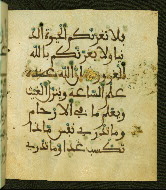 فلا تغرنكم الحيوة الد
نيا ولا يغرنكم بالله
الغرور ان الله عنده
علم الساعة وينزل الغيث
ويعلم ما في الارحام
وما تدري نفس ماذا
تكسب غدا وما تدري